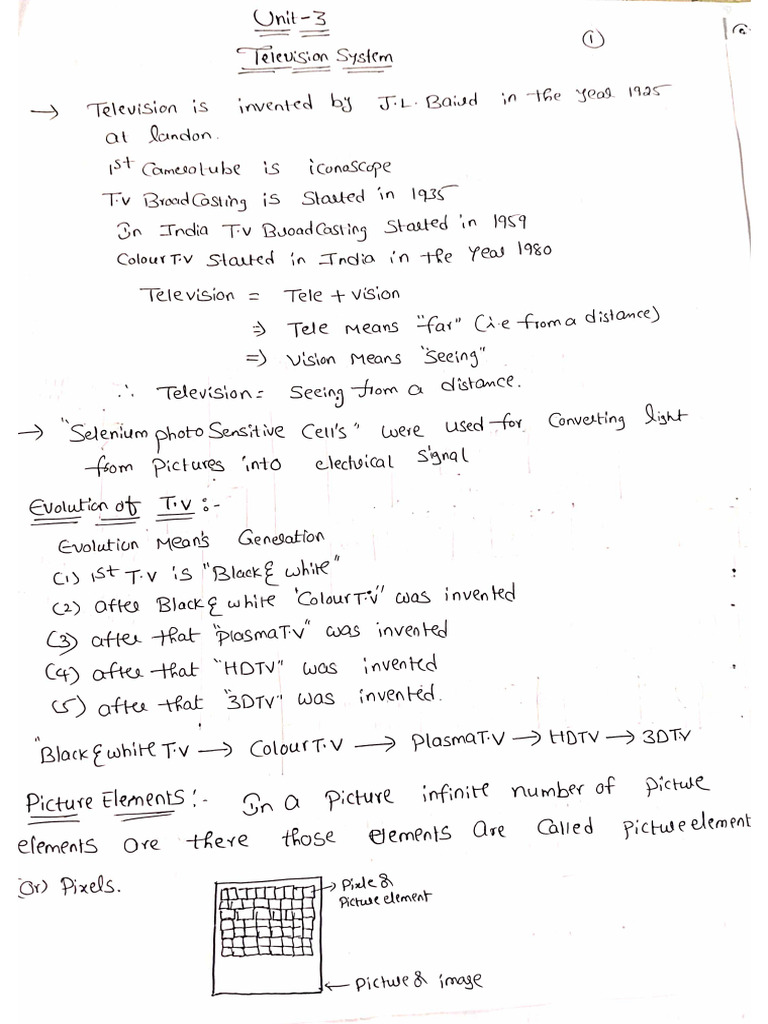 Unit-3
①
Television System
→ Television is invented by J.L. Baird in the year 1925
at london.
1st Camera tube is iconoscope
T.v BroadCasting is Started in 1935
In India T.v BroadCasting Started in 1959
Colour T.v Started in India in the Year 1980
Television = Tele + vision
⇒ Tele Means "far" (i.e from a distance)
⇒ Vision Means "Seeing"
∴ Television = Seeing from a distance.
→ "Selenium photo Sensitive Cell's" were used for Converting light
from Pictures into electrical Signal
Evolution of T.v :-
Evolution Mean's Generation
(1) 1st T.v is "Black & white"
(2) after Black & white 'Colour T.v" was invented
(3) after that "plasma T.v" was invented
(4) after that "HDTV" was invented
(5) after that "3DTV" was invented.
"Black & white T.v → Colour T.v → Plasma T.v → HDTV → 3DTV
Picture Elements :- In a Picture infinite number of picture
elements are there those elements are Called picture element
(or) Pixels.
→ Pixle &
Picture element
← Picture & image